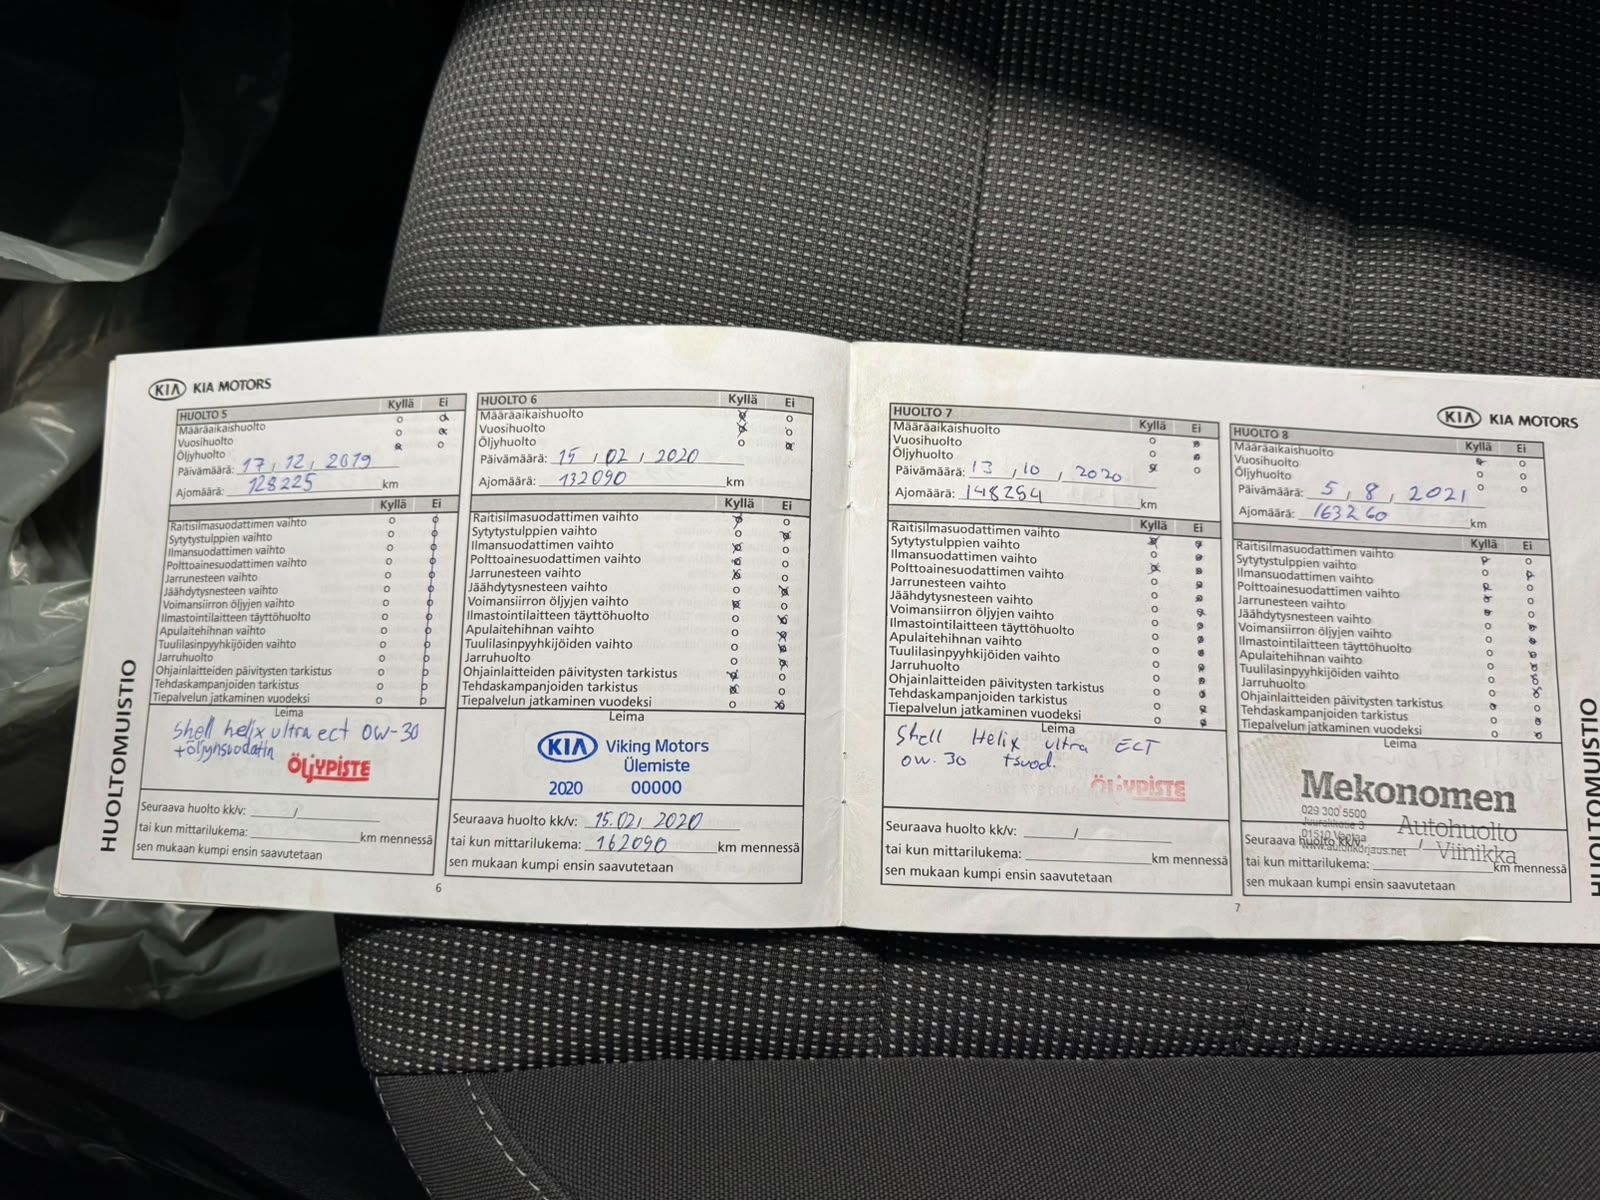 KIA KIA MOTORS
HUOLTOMUISTIO
HUOLTO 5 Kyllä Ei
Määräaikaishuolto
Vuosihuolto
Öljyhuolto
Päivämäärä: 17, 12, 2019
Ajomäärä: 128225 km
Kyllä Ei
Raitisilmasuodattimen vaihto
Sytytystulppien vaihto
Ilmansuodattimen vaihto
Polttoainesuodattimen vaihto
Jarrunesteen vaihto
Jäähdytysnesteen vaihto
Voimansiirron öljyjen vaihto
Ilmastointilaitteen täyttöhuolto
Apulaitehihnan vaihto
Tuulilasinpyyhkijöiden vaihto
Jarruhuolto
Ohjainlaitteiden päivitysten tarkistus
Tehdaskampanjoiden tarkistus
Tiepalvelun jatkaminen vuodeksi
Leima
Shell helix ultra ect 0w-30
+öljynsuodatin
ÖLJYPISTE
Seuraava huolto kk/v: /
tai kun mittarilukema: km mennessä
sen mukaan kumpi ensin saavutetaan
6
HUOLTO 6 Kyllä Ei
Määräaikaishuolto
Vuosihuolto
Öljyhuolto
Päivämäärä: 15, 02, 2020
Ajomäärä: 132090 km
Kyllä Ei
Raitisilmasuodattimen vaihto
Sytytystulppien vaihto
Ilmansuodattimen vaihto
Polttoainesuodattimen vaihto
Jarrunesteen vaihto
Jäähdytysnesteen vaihto
Voimansiirron öljyjen vaihto
Ilmastointilaitteen täyttöhuolto
Apulaitehihnan vaihto
Tuulilasinpyyhkijöiden vaihto
Jarruhuolto
Ohjainlaitteiden päivitysten tarkistus
Tehdaskampanjoiden tarkistus
Tiepalvelun jatkaminen vuodeksi
Leima
KIA Viking Motors
Ülemiste
2020 00000
Seuraava huolto kk/v: 15.02, 2020
tai kun mittarilukema: 162090 km mennessä
sen mukaan kumpi ensin saavutetaan
HUOLTO 7 Kyllä Ei
Määräaikaishuolto
Vuosihuolto
Öljyhuolto
Päivämäärä: 13, 10, 2020
Ajomäärä: 148254 km
Kyllä Ei
Raitisilmasuodattimen vaihto
Sytytystulppien vaihto
Ilmansuodattimen vaihto
Polttoainesuodattimen vaihto
Jarrunesteen vaihto
Jäähdytysnesteen vaihto
Voimansiirron öljyjen vaihto
Ilmastointilaitteen täyttöhuolto
Apulaitehihnan vaihto
Tuulilasinpyyhkijöiden vaihto
Jarruhuolto
Ohjainlaitteiden päivitysten tarkistus
Tehdaskampanjoiden tarkistus
Tiepalvelun jatkaminen vuodeksi
Leima
Shell Helix ultra ECT
0w-30 +suod.
ÖLJYPISTE
Seuraava huolto kk/v: /
tai kun mittarilukema: km mennessä
sen mukaan kumpi ensin saavutetaan
KIA KIA MOTORS
HUOLTO 8 Kyllä Ei
Määräaikaishuolto
Vuosihuolto
Öljyhuolto
Päivämäärä: 5, 8, 2021
Ajomäärä: 163260 km
Kyllä Ei
Raitisilmasuodattimen vaihto
Sytytystulppien vaihto
Ilmansuodattimen vaihto
Polttoainesuodattimen vaihto
Jarrunesteen vaihto
Jäähdytysnesteen vaihto
Voimansiirron öljyjen vaihto
Ilmastointilaitteen täyttöhuolto
Apulaitehihnan vaihto
Tuulilasinpyyhkijöiden vaihto
Jarruhuolto
Ohjainlaitteiden päivitysten tarkistus
Tehdaskampanjoiden tarkistus
Tiepalvelun jatkaminen vuodeksi
Leima
Mekonomen
029 300 5500
Autohuolto
01510 Vantaa
Viinikka
www.autonkorjaus.net
Seuraava huolto kk/v: /
tai kun mittarilukema: km mennessä
sen mukaan kumpi ensin saavutetaan
7
HUOLTOMUISTIO